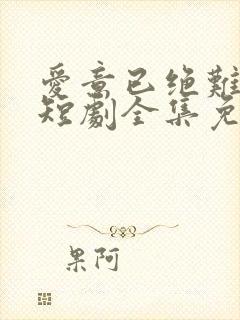 愛意已绝難
短劇全集免
果阿